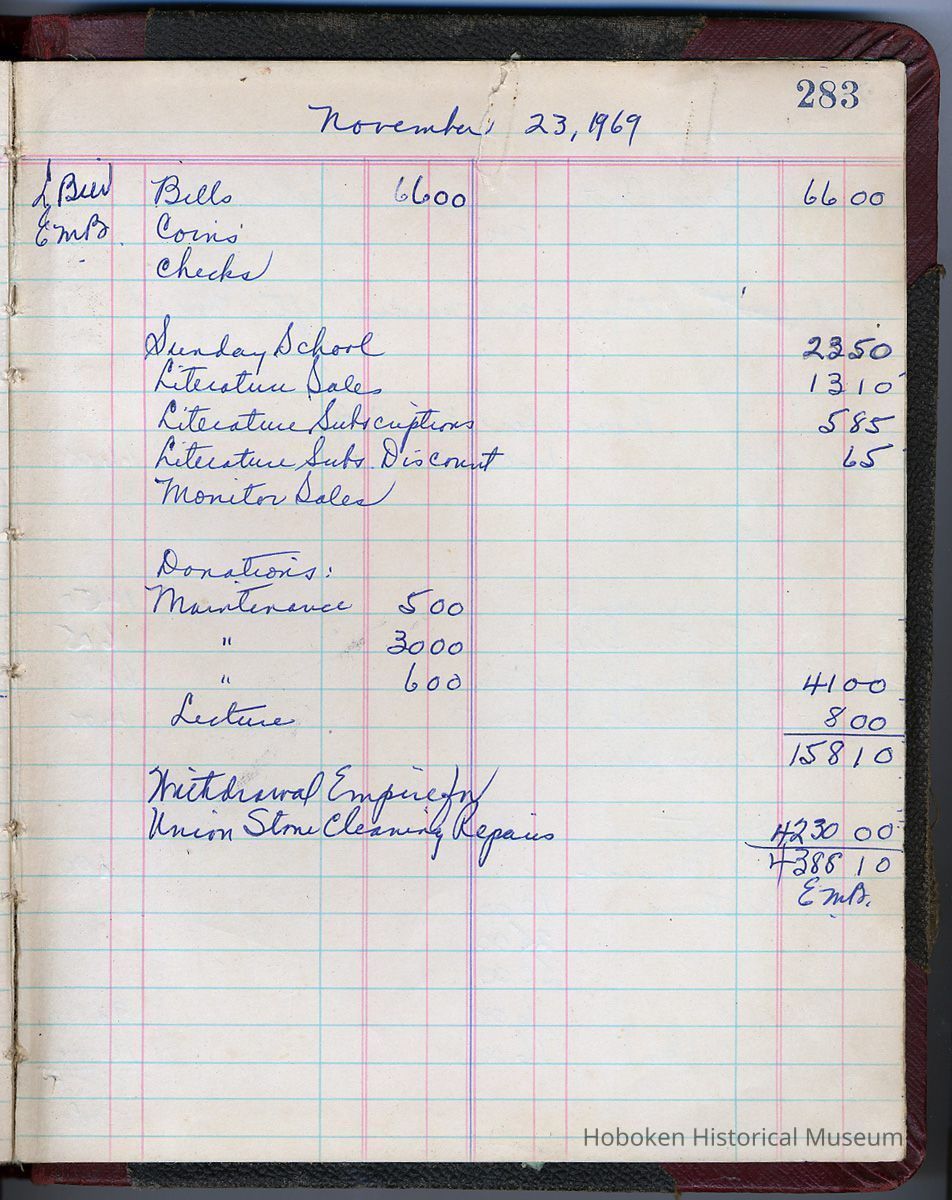 283
November 23, 1969
L Bier Bills 6600 66 00
EMB. Coins
Checks
Sunday School 23 50
Literature Sales 13 10
Literature Subscriptions 5 85
Literature Subs. Discount 65
Monitor Sales
Donations:
Maintenance 500
" 3000
" 600 41 00
Lecture 8 00
158 10
Withdrawal Empire for
Union Stone Cleaning Repairs 4230 00
4388 10
EMB.
Hoboken Historical Museum